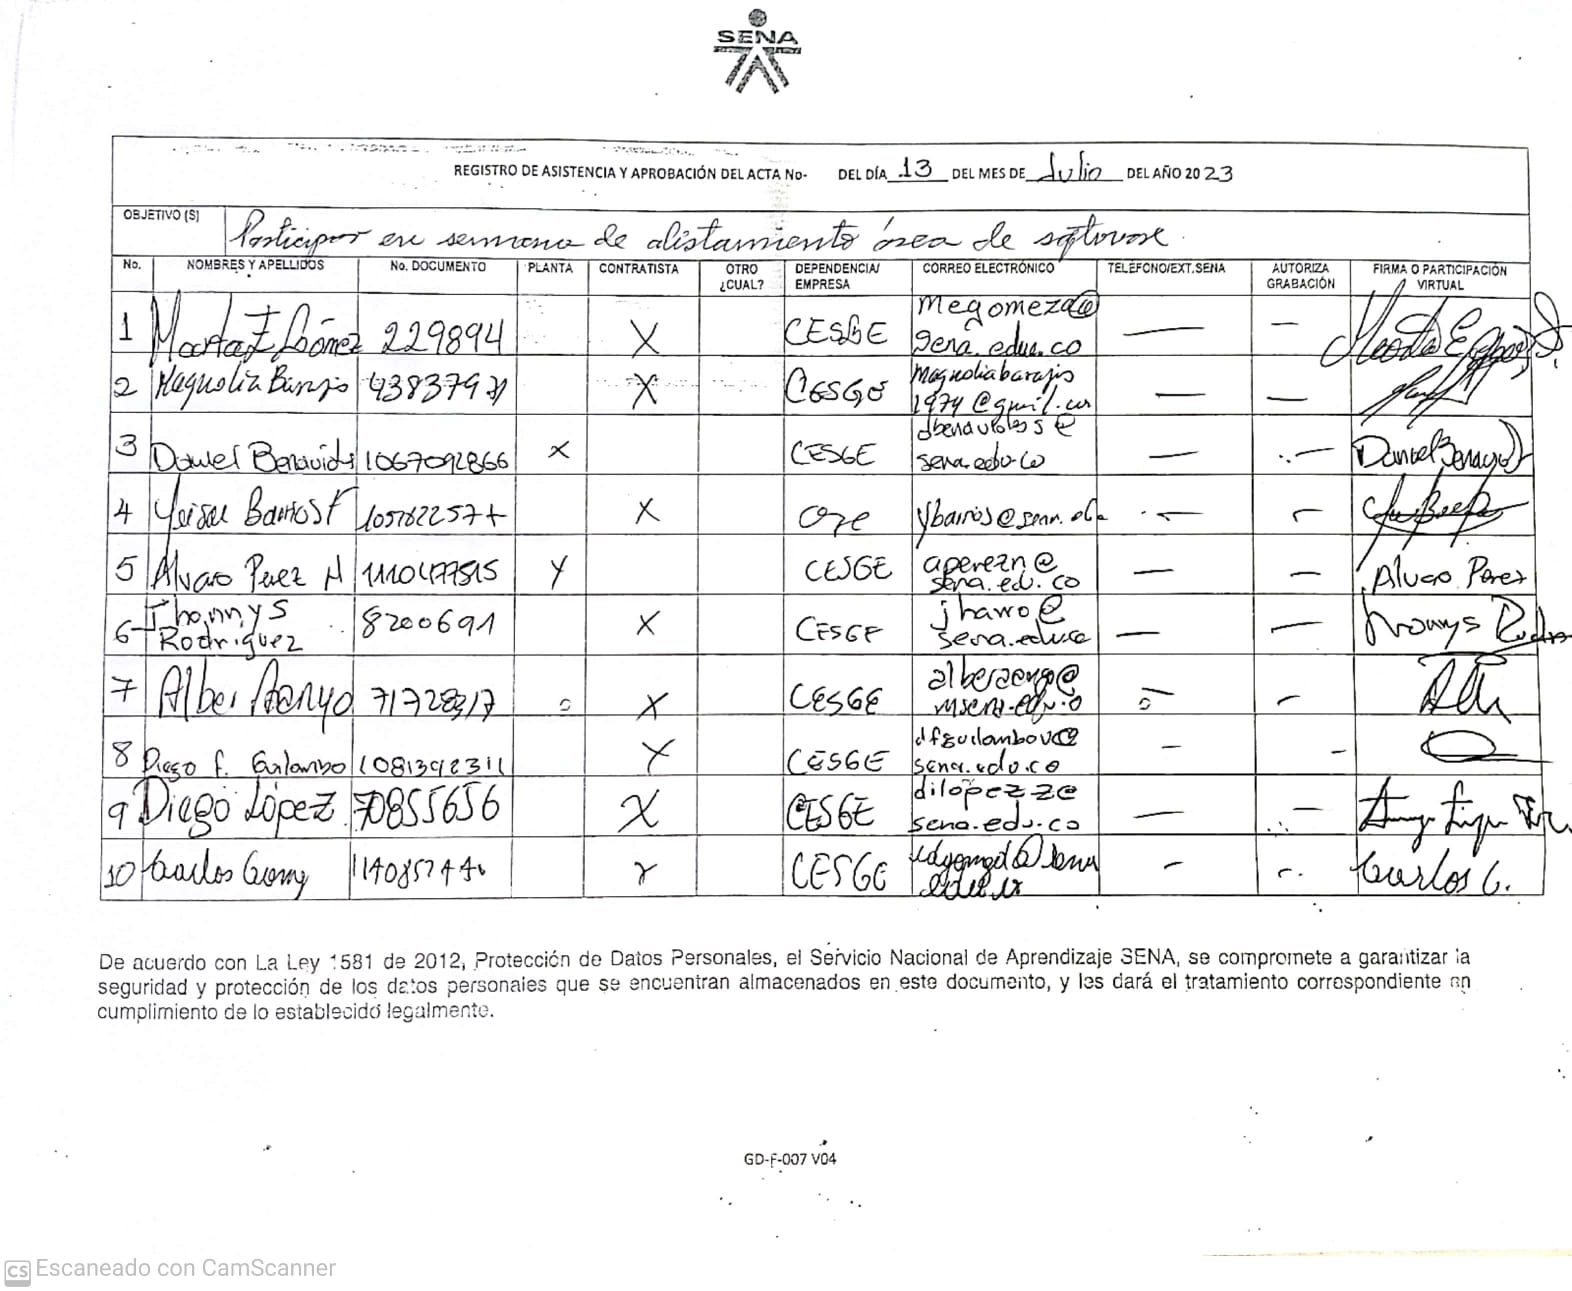 SENA
REGISTRO DE ASISTENCIA Y APROBACIÓN DEL ACTA No- DEL DÍA 13 DEL MES DE Julio DEL AÑO 2023
OBJETIVO (S) Participar en semana de alistamiento área de software.
No. NOMBRES Y APELLIDOS No. DOCUMENTO PLANTA CONTRATISTA OTRO ¿CUAL? DEPENDENCIA/ EMPRESA CORREO ELECTRÓNICO TELÉFONO/EXT.SENA AUTORIZA GRABACIÓN FIRMA O PARTICIPACIÓN VIRTUAL
1 Marta E Gómez 229894 X CESGE megomeza@ sena.edu.co — —
2 Magnolia Barajas X CESGE Magnoliabarajas 1974@gmail.com — —
3 Daniel Benavides 1067092866 X CESGE sena.edu.co — — Daniel Benavid
4 Barrios F X ybarrios@ — —
5 Alvaro Perez N X CESGE aperezn@ sena.edu.co — — Alvaro Perez
6 Jhonnys Rodriguez 8200691 X CESGE jharro@ sena.edu.co — — Jhonnys
7 Alber X CESGE — —
8 Diego f. Guilombo X CESGE sena.edu.co — —
9 Diego López 70855656 X CESGE dilopezz@ sena.edu.co — —
10 Carlos X CESGE — — Carlos G.
De acuerdo con La Ley 1581 de 2012, Protección de Datos Personales, el Servicio Nacional de Aprendizaje SENA, se compromete a garantizar la
seguridad y protección de los datos personales que se encuentran almacenados en este documento, y les dará el tratamiento correspondiente en
cumplimiento de lo establecido legalmente.
GD-F-007 V04
CS Escaneado con CamScanner